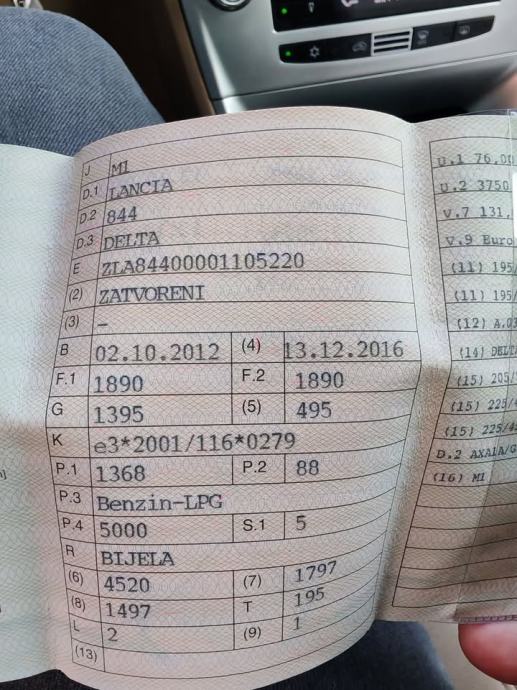 J M1
D.1 LANCIA
D.2 844
D.3 DELTA
E ZLA84400001105220
(2) ZATVORENI
(3) –
B 02.10.2012 (4) 13.12.2016
F.1 1890 F.2 1890
G 1395 (5) 495
K e3*2001/116*0279
P.1 1368 P.2 88
P.3 Benzin-LPG
P.4 5000 S.1 5
R BIJELA
(6) 4520 (7) 1797
(8) 1497 T 195
L 2 (9) 1
(13)
U.1 76,00
U.2 3750
V.7 131,
V.9 Euro
(11) 195/
(11) 195/
(12) A.03
(14) DELT
(15) 205/
(15) 225/4
(15) 225/45
D.2 AXA1A/G
(16) M1